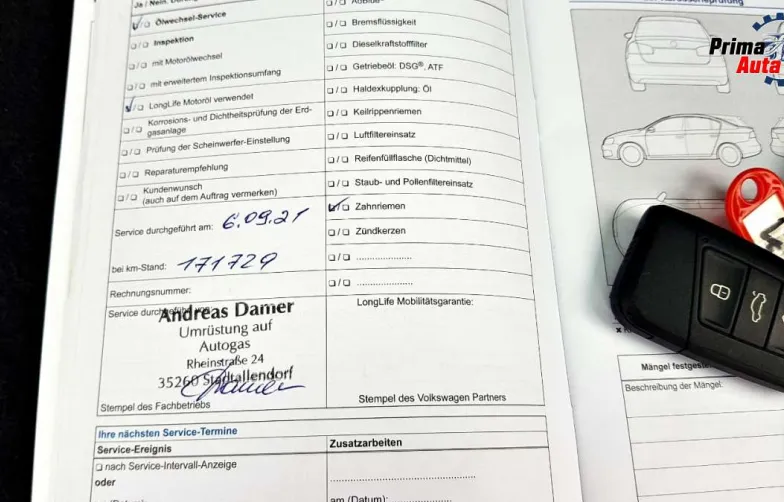 Ja / Nein
☑/☐ Ölwechsel-Service
☐/☐ Inspektion
☐/☐ mit Motorölwechsel
☐/☐ mit erweitertem Inspektionsumfang
☑/☐ LongLife Motoröl verwendet
☐/☐ Korrosions- und Dichtheitsprüfung der Erd-
gasanlage
☐/☐ Prüfung der Scheinwerfer-Einstellung
☐/☐ Reparaturempfehlung
☐/☐ Kundenwunsch
(auch auf dem Auftrag vermerken)
Service durchgeführt am: 6.09.21
bei km-Stand: 171729
Rechnungsnummer:
Service durchgeführt
Andreas Damer
Umrüstung auf
Autogas
Rheinstraße 24
35260 Stadtallendorf
Stempel des Fachbetriebs
☐/☐ AdBlue
☐/☐ Bremsflüssigkeit
☐/☐ Dieselkraftstofffilter
☐/☐ Getriebeöl: DSG®, ATF
☐/☐ Haldexkupplung: Öl
☐/☐ Keilrippenriemen
☐/☐ Luftfiltereinsatz
☐/☐ Reifenfüllflasche (Dichtmittel)
☐/☐ Staub- und Pollenfiltereinsatz
☑/☐ Zahnriemen
☐/☐ Zündkerzen
☐/☐ .....................
☐/☐ .....................
LongLife Mobilitätsgarantie:
Stempel des Volkswagen Partners
Ihre nächsten Service-Termine
Service-Ereignis
☐ nach Service-Intervall-Anzeige
oder
Zusatzarbeiten
am (Datum):
Prima
Auto
Mängel
Beschreibung der Mängel: